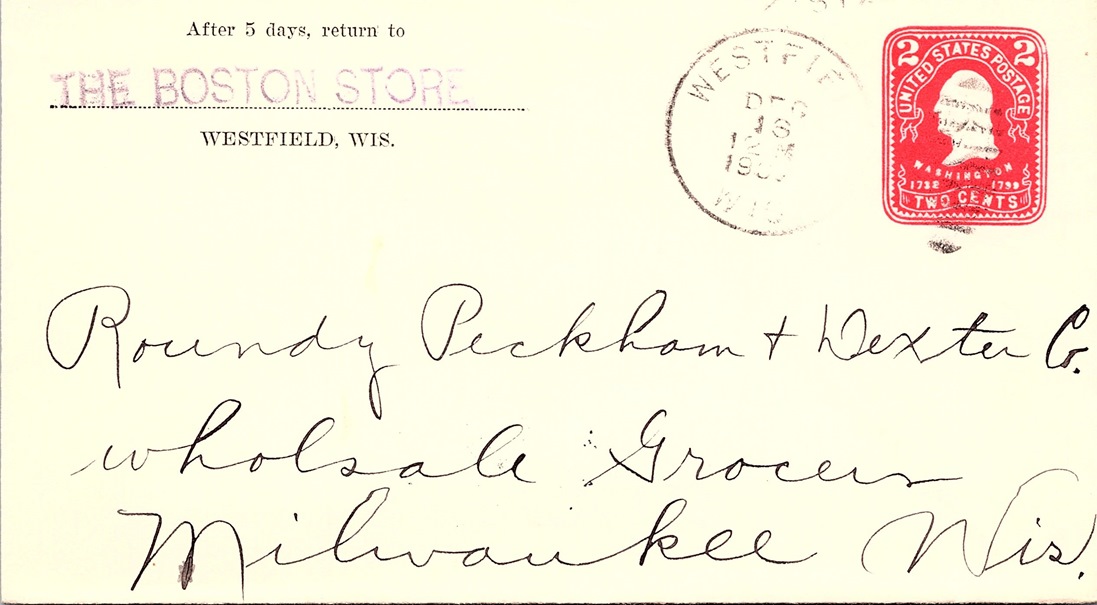 After 5 days, return to
THE BOSTON STORE
WESTFIELD, WIS.
WESTFIE
DEC
16
12 M
WIS
2 2
UNITED STATES POSTAGE
WASHINGTON
1732 1799
TWO CENTS
Roundy Peckham + Dexter Co.
wholsale Grocers
Milwaukee Wis.